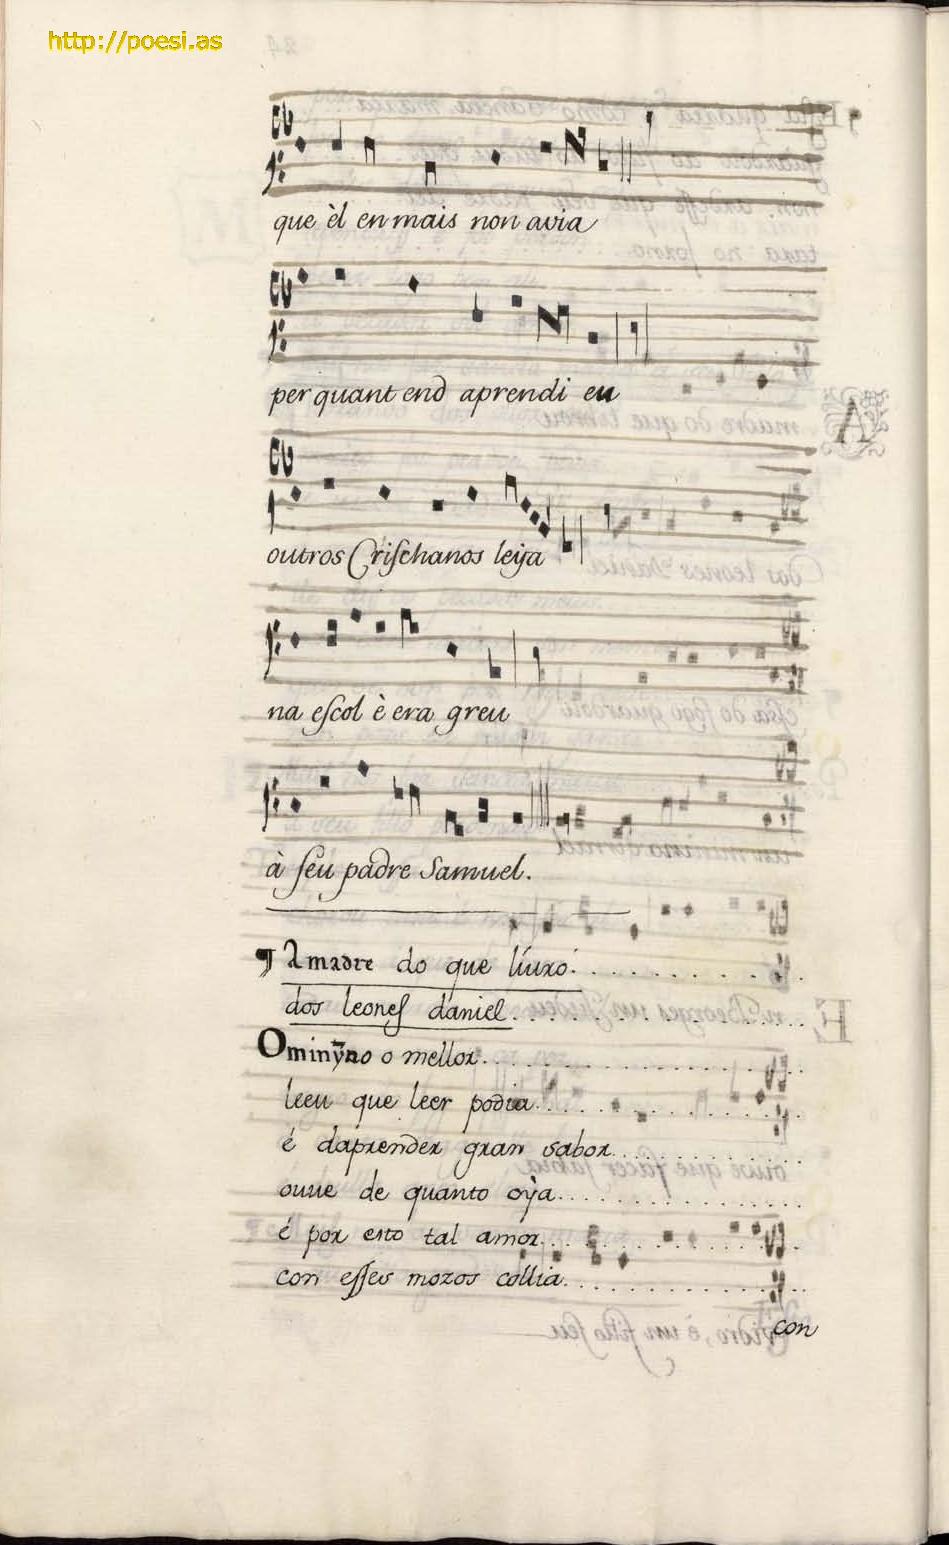 http://poesi.as
que èl en mais non avia
per quant end aprendi eu
outros Crischanos leya
na escol è era greu
à seu padre Samuel.
¶ A madre do que liuro
dos leones daniel
O minyno o mellor
leeu que leer podia
é daprender gran sabor
ouue de quanto oya
é por esto tal amor
con esses mozos collia
con